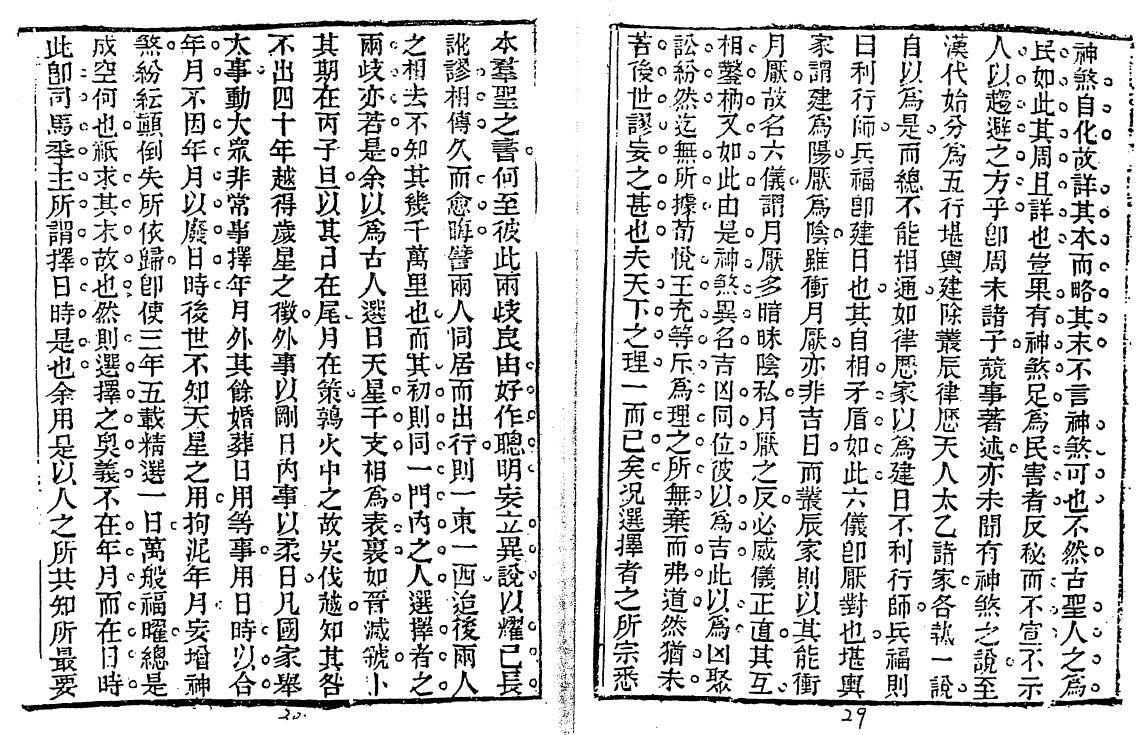 神煞自化故詳其本而略其末不言神煞可也不然古聖人之為
民如此其周且詳也豈果有神煞足為民害者反秘而不宣不示
人以趨避之方乎卽周末諸子競事著述亦未聞有神煞之說至
漢代始分為五行堪輿建除叢辰律歷天人太乙諸家各執一說
自以為是而總不能相通如律歷家以為建日不利行師兵福則
日利行師兵福卽建日也其自相矛盾如此六儀卽厭對也堪輿
家謂建為陽厭為陰雖衝月厭亦非吉日而叢辰家則以其能衝
月厭故名六儀謂月厭多暗昧陰私月厭之反必威儀正直其互
相鑿枘又如此由是神煞異名吉凶同位彼以為吉此以為凶聚
訟紛然迄無所據荀悅王充等斥為理之所無棄而弗道然猶未
若後世謬妄之甚也夫天下之理一而已矣况選擇者之所宗悉
本羣聖之書何至彼此兩歧良由好作聰明妄立異說以耀己長
訛謬相傳久而愈晦譬兩人同居而出行則一東一西迨後兩人
之相去不知其幾千萬里也而其初則同一門內之人選擇者之
兩歧亦若是余以為古人選日天星干支相為表裏如晉滅虢卜
其期在丙子旦以其日在尾月在策鶉火中之故吳伐越知其咎
不出四十年越得歲星之徵外事以剛日內事以柔日凡國家舉
大事動大眾非常事擇年月外其餘婚葬日用等事用日時以合
年月不因年月以廢日時後世不知天星之用拘泥年月妄增神
煞紛紜顚倒失所依歸卽使三年五載精選一日萬般福曜總是
成空何也祇求其末故也然則選擇之奥義不在年月而在日時
此卽司馬季主所謂擇日時是也余用是以人之所共知所最要
29